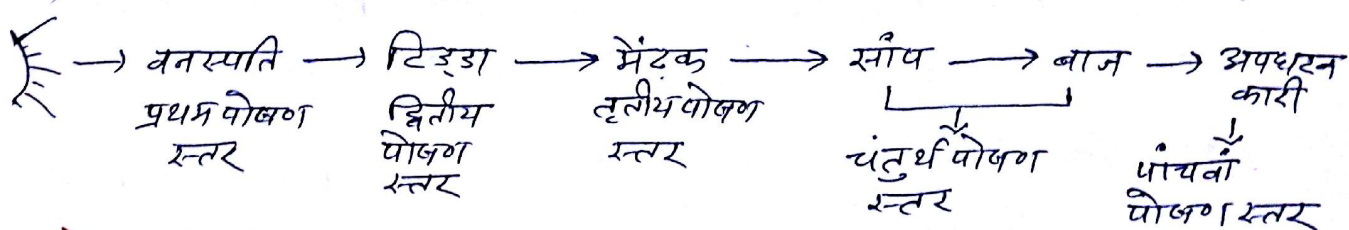 → वनस्पति → टिड्डा → मेंढक → सांप → बाज → अपघटन
कारी
प्रथम पोषण
स्तर
द्वितीय
पोषण
स्तर
तृतीय पोषण
स्तर
चंतुर्थ पोषण
स्तर
पांचवां
पोषण स्तर